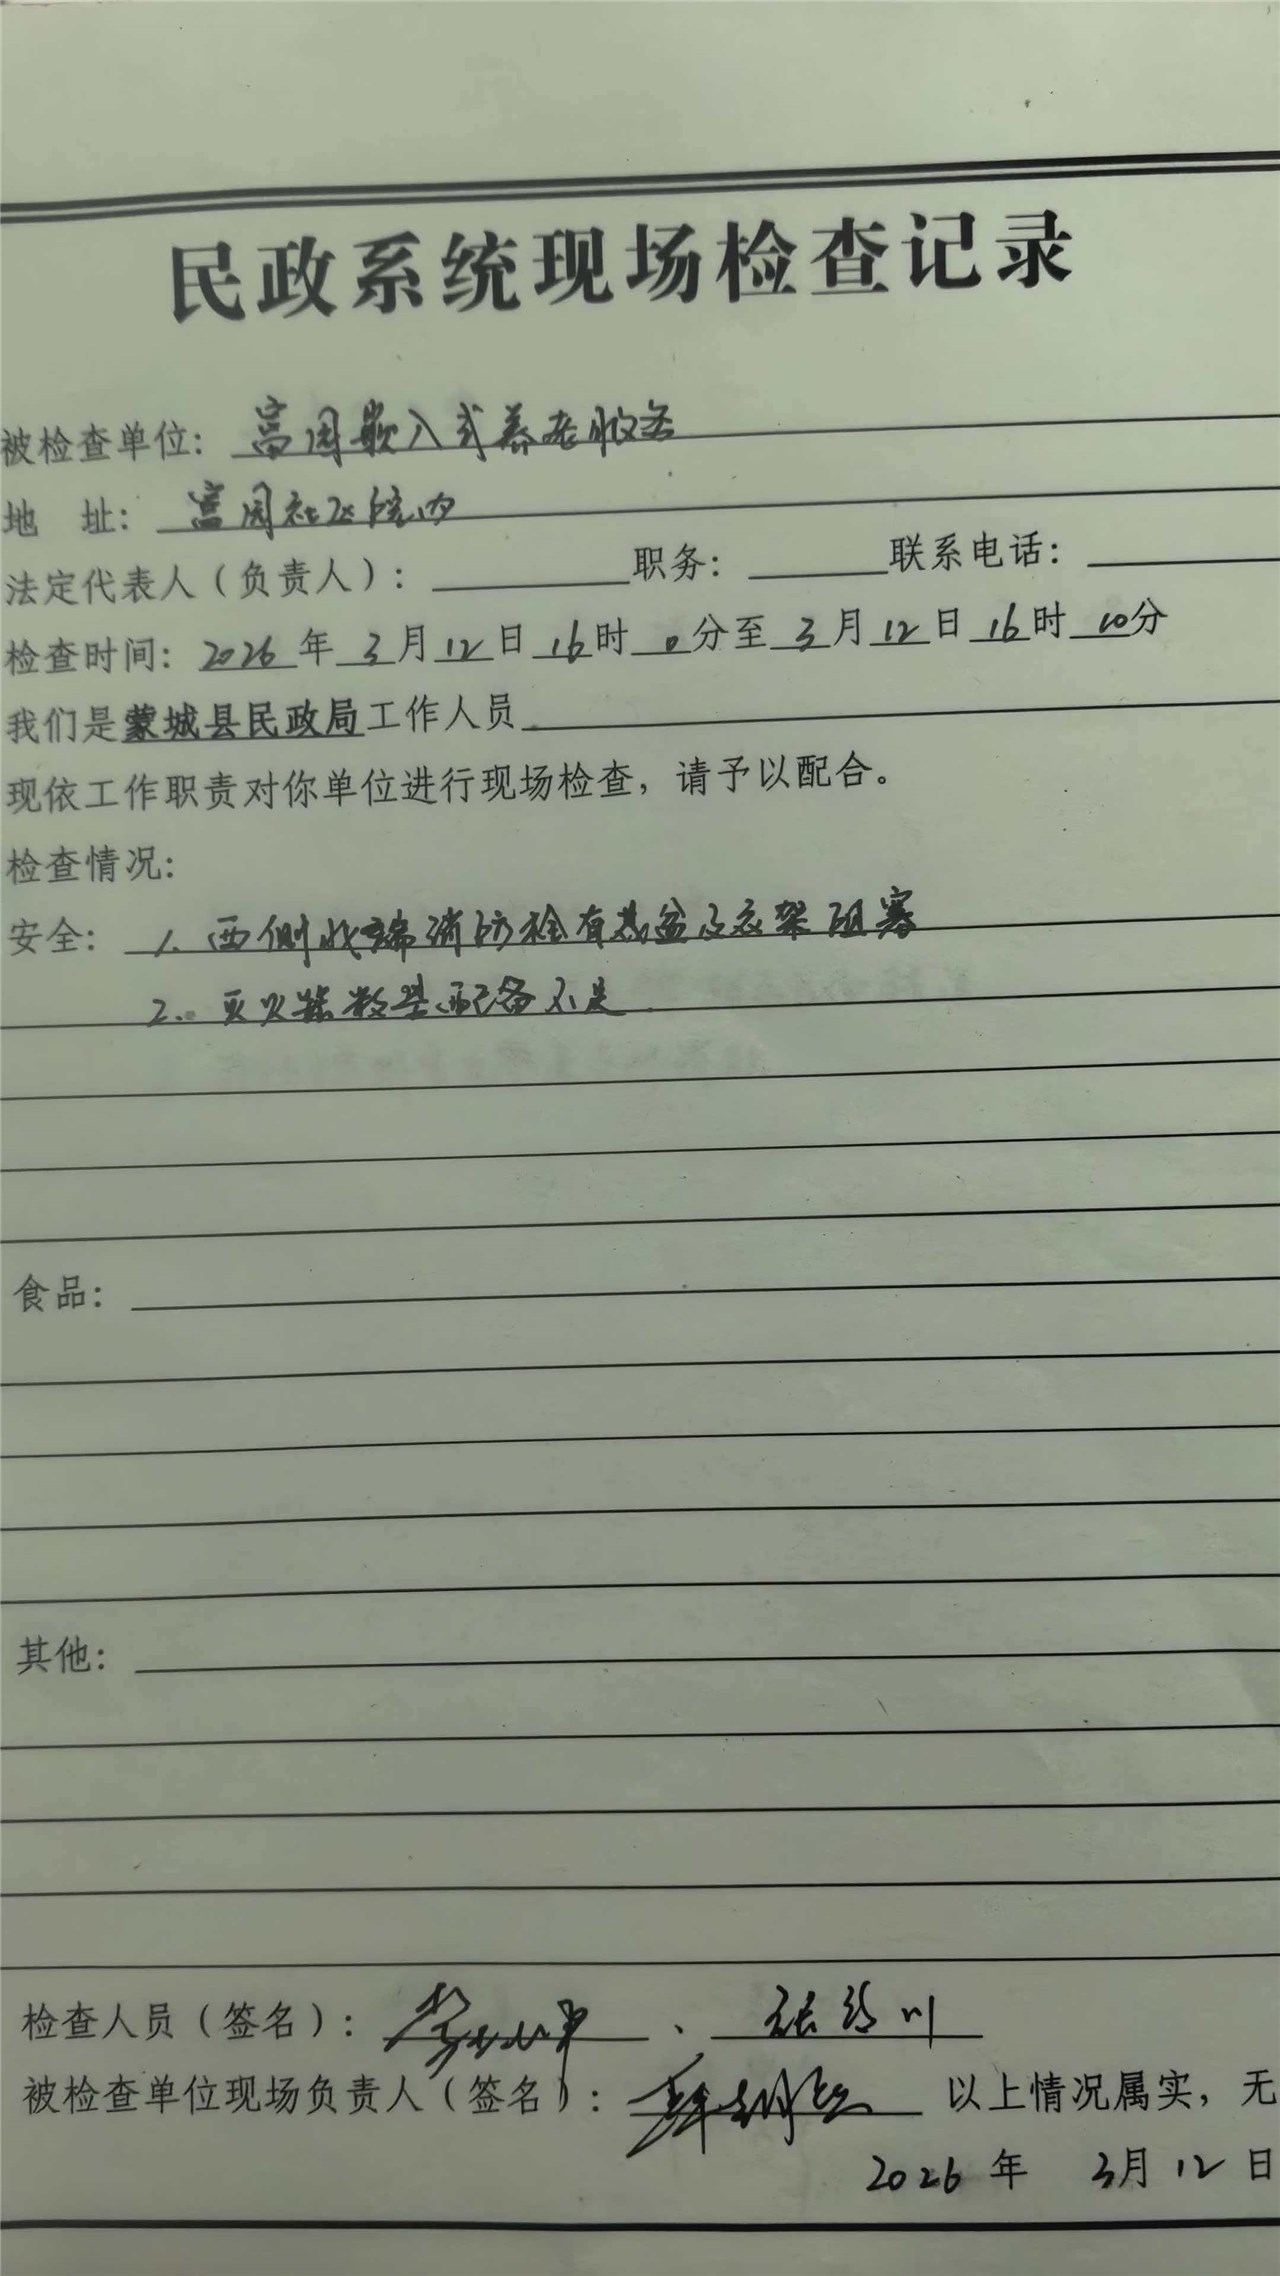 民政系统现场检查记录
被检查单位：富园嵌入式养老服务
地 址：富园社区院内
法定代表人（负责人）： 职务： 联系电话：
检查时间：2026年3月12日16时0分至3月12日16时10分
我们是蒙城县民政局工作人员
现依工作职责对你单位进行现场检查，请予以配合。
检查情况：
安全：1、西侧北端消防栓有花盆及衣架阻塞
2、灭火器数量配备不足
食品：
其他：
检查人员（签名）： 、张 川
被检查单位现场负责人（签名）： 以上情况属实，无
2026年 3月12日